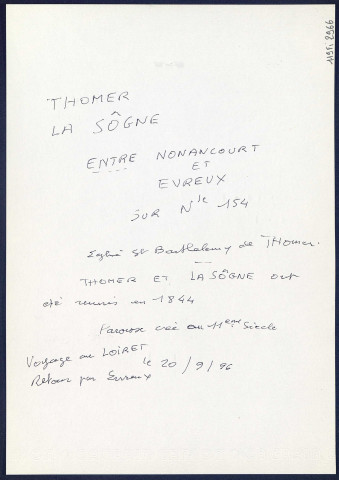 119Fi 2966
THOMER
LA SÔGNE
ENTRE NONANCOURT
ET
EVREUX
SUR Nle 154
Eglise St Barthélemy de THomer.
THOMER ET LA SÔGNE ont
été réunis en 1844
Paroisse créé au 11ème Siècle
Voyage au LOIRET
Retour par Evreux le 20/9/96